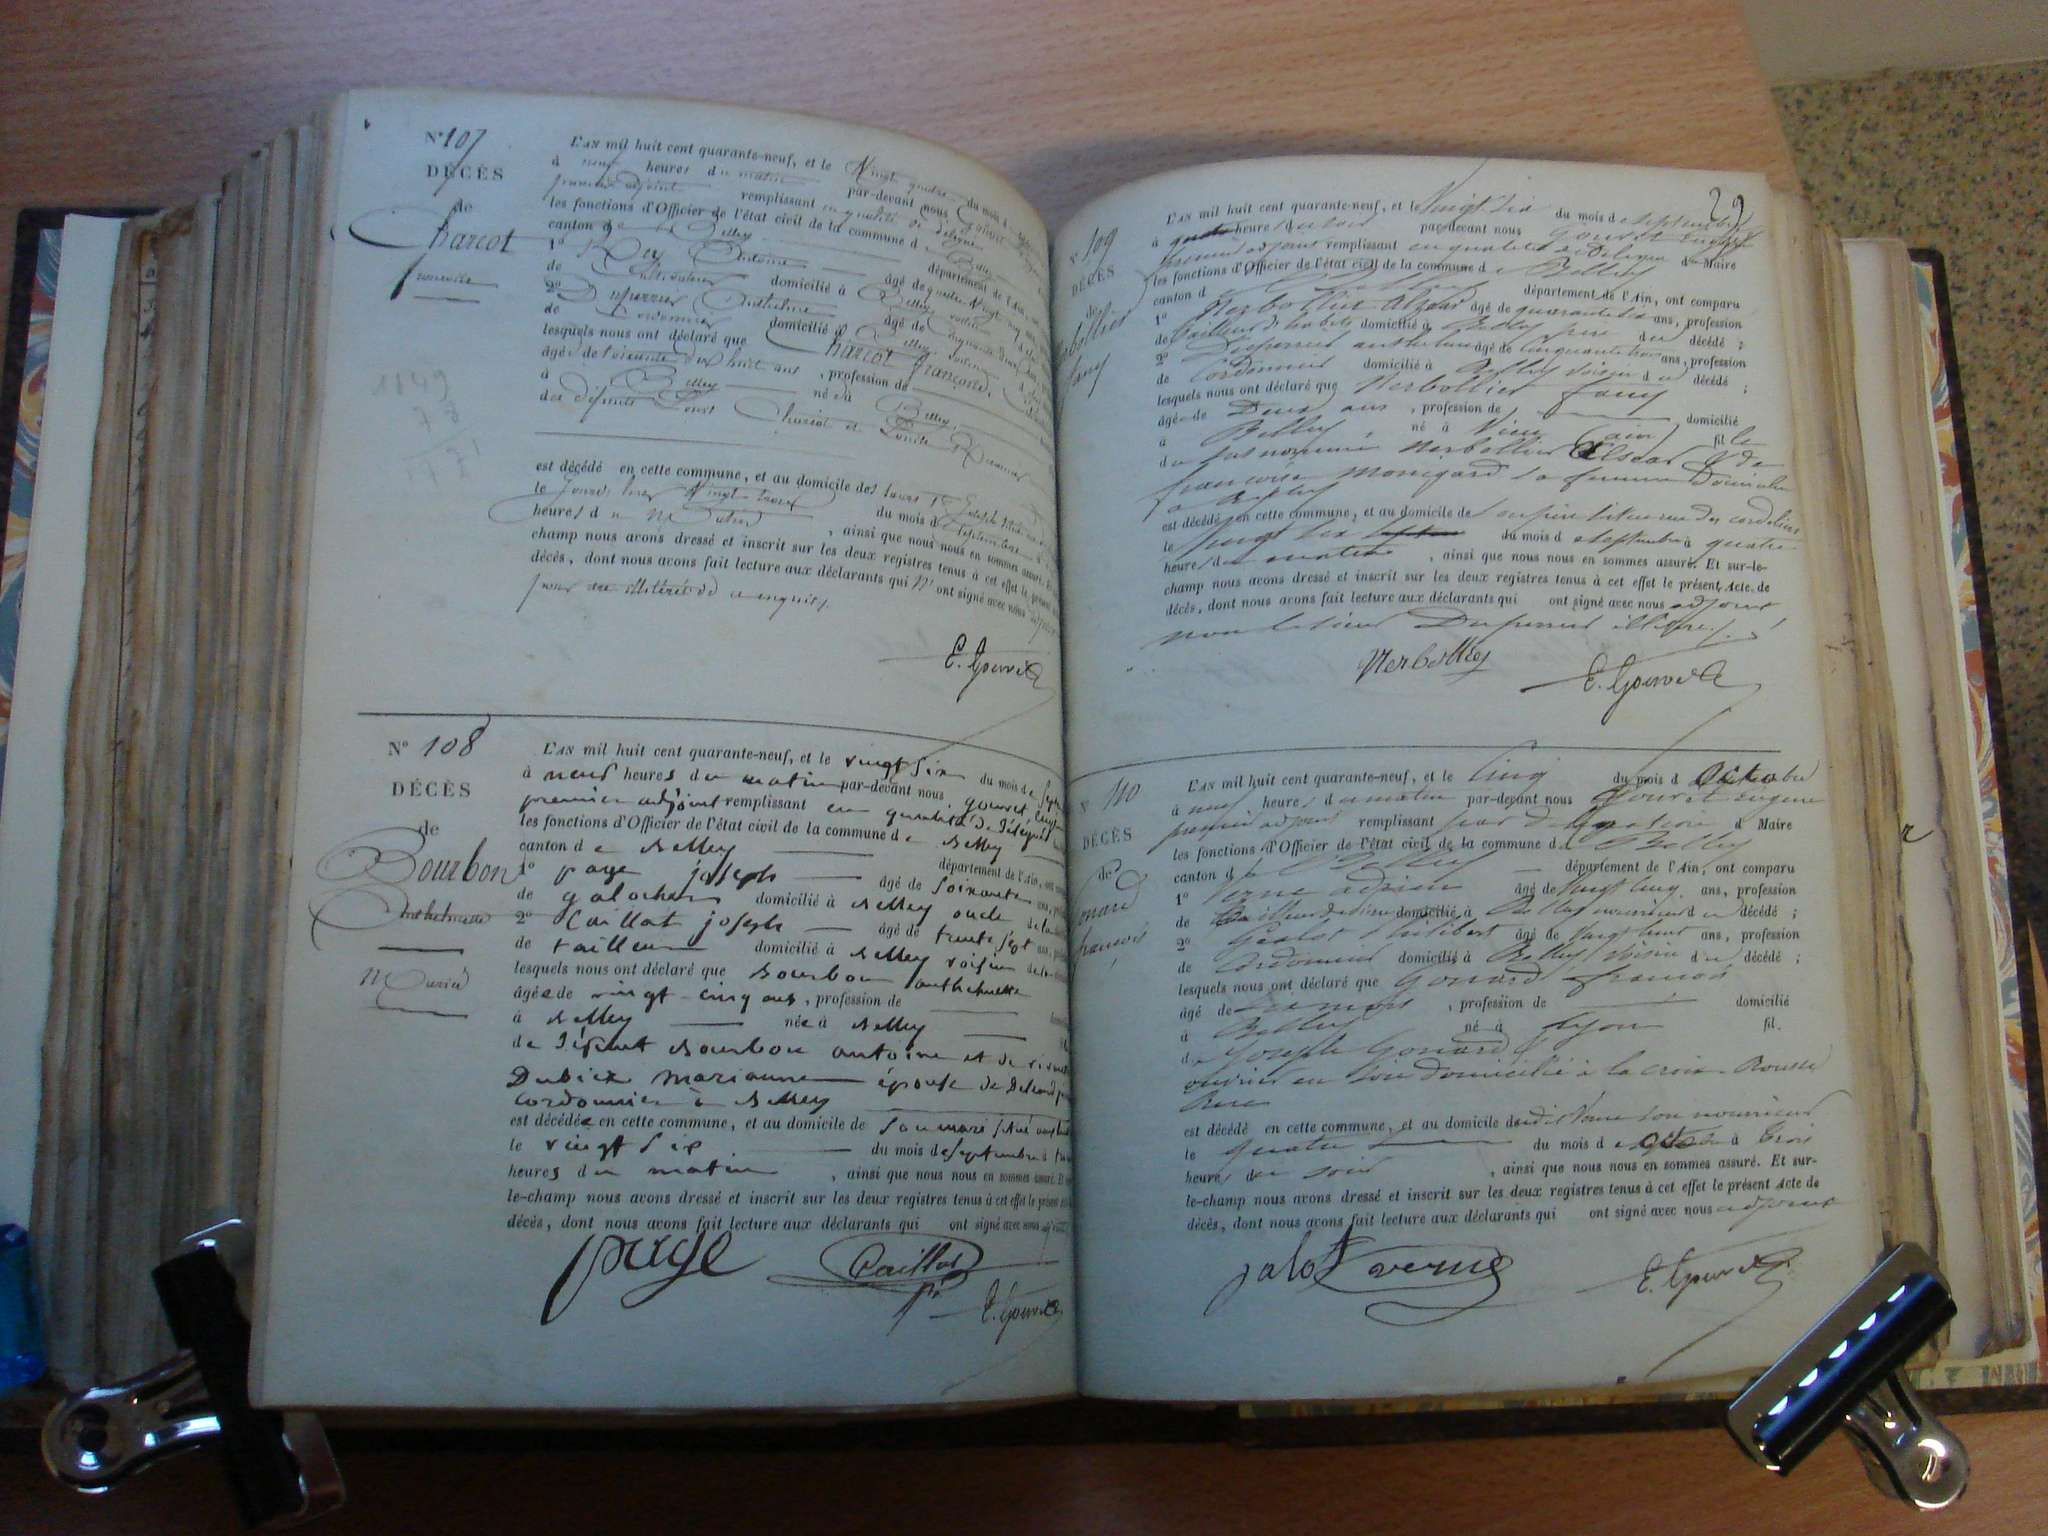 N° 107
DÉCÈS
de
Charcot
françoise
L'AN mil huit cent quarante-neuf, et le Vingt quatre du mois d
à neuf heures du matin par-devant nous
premier adjoint remplissant en qualité de délégué
les fonctions d'Officier de l'état civil de la commune d
canton de Belley département de l'Ain,
1° Rey Antoine âgé de quatre Vingt
de Cultivateur domicilié à Belley
2° Duperrier Anthelme âgé de
de Cordonnier domicilié à Belley
lesquels nous ont déclaré que Charcot françoise,
âgée de soixante dix huit ans , profession de
à Belley né à Belley,
des défunts Louis Charcot et
est décédé en cette commune, et au domicile de
le Vingt trois du mois de septembre
heures du Matin , ainsi que nous nous en sommes assuré.
champ nous avons dressé et inscrit sur les deux registres tenus à cet effet le présent
décès, dont nous avons fait lecture aux déclarants qui n'ont signé avec nous
pour être illitérés de ce enquis.
E. Gouvet
N° 108
DÉCÈS
de
Bourbon
Anthelmette
L'AN mil huit cent quarante-neuf, et le vingt six du mois de
à neuf heures du matin par-devant nous gouvet
premier adjoint remplissant en qualité de délégué
les fonctions d'Officier de l'état civil de la commune de Belley
canton de Belley département de l'Ain, ont
1° page joseph âgé de soixante
de galocher domicilié à Belley oncle de la
2° Caillat joseph âgé de trente sept ans,
de tailleur domicilié à Belley voisin de la
lesquels nous ont déclaré que Bourbon anthelmette
âgée de vingt-cinq ans , profession de
à Belley née à Belley
de défunt Bourbon antoine et de
Dubiez marianne épouse de
cordonnier à Belley
est décédée en cette commune, et au domicile de son mari situé
le vingt six du mois de septembre à
heures du matin , ainsi que nous nous en sommes assuré. Et
le-champ nous avons dressé et inscrit sur les deux registres tenus à cet effet le présent
décès, dont nous avons fait lecture aux déclarants qui ont signé avec nous
page Caillat
E. Gouvet
29
N° 109
DÉCÈS
de
L'AN mil huit cent quarante-neuf, et le Vingt six du mois de septembre
à quatre heures du soir par-devant nous Gouvet Eugène
premier adjoint remplissant en qualité de délégué du Maire
les fonctions d'Officier de l'état civil de la commune de Belley
canton de Belley département de l'Ain, ont comparu
1° Nerbollier âgé de quarante six ans, profession
de tailleur d'habits domicilié à Belley père du décédé ;
2° Duperrier anthelme âgé de cinquante trois ans, profession
de Cordonnier domicilié à Belley voisin du décédé ;
lesquels nous ont déclaré que Nerbollier fany
âgé de Deux ans , profession de domicilié
à Belley né à Vieu (ain) fille
du susnommé Nerbollier & de
françoise Monegard sa femme Domiciliée
à Belley
est décédé en cette commune, et au domicile de son père situé rue des cordeliers
le Vingt six du mois de septembre à quatre
heures du matin , ainsi que nous nous en sommes assuré. Et sur-le-
champ nous avons dressé et inscrit sur les deux registres tenus à cet effet le présent Acte de
décès, dont nous avons fait lecture aux déclarants qui ont signé avec nous adjoint
non le sieur Duperrier illitéré.
Nerbollier E. Gouvet
N° 110
DÉCÈS
de
Gonard
françois
L'AN mil huit cent quarante-neuf, et le Cinq du mois d Octobre
à neuf heures du matin par-devant nous Gouvet Eugène
premier adjoint remplissant par délégation du Maire
les fonctions d'Officier de l'état civil de la commune de Belley
canton de Belley département de l'Ain, ont comparu
1° Verne adrien âgé de Vingt cinq ans, profession
de tailleur de pierre domicilié à Belley nourricier du décédé ;
2° Philibert âgé de Vingt huit ans, profession
de Cordonnier domicilié à Belley Voisin du décédé ;
lesquels nous ont déclaré que Gonard françois
âgé de mois , profession de domicilié
à Belley né à Lyon fil.
de Joseph Gonard
ouvrier en soie domicilié à la croix-Rousse
Rhone
est décédé en cette commune, et au domicile dudit Verne son nourricier
le quatre du mois d octobre à Trois
heures du soir , ainsi que nous nous en sommes assuré. Et sur-
le-champ nous avons dressé et inscrit sur les deux registres tenus à cet effet le présent Acte de
décès, dont nous avons fait lecture aux déclarants qui ont signé avec nous adjoint
jalot verne E. Gouvet